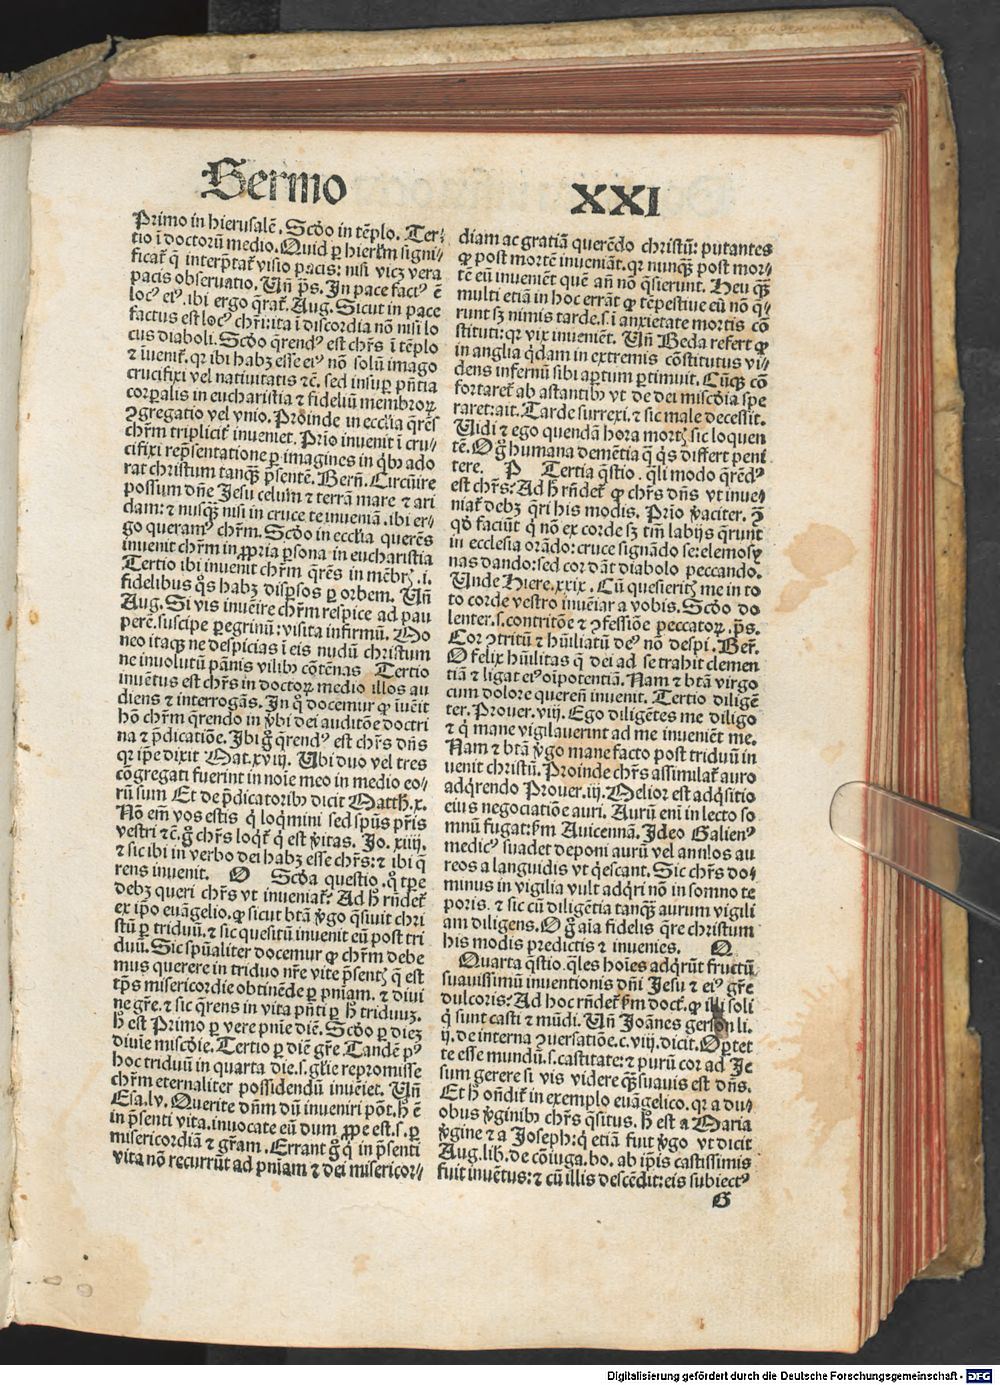 Sermo XXI
Primo in hierusalē. Scđo in tēplo. Ter⸗
tio ī doctorū medio. Quid ꝑ hierłm signi⸗
ficat̄ q̄ interp̄tat̄ visio pacis: nisi vicꝫ vera
pacis obseruatio. Uñ p̄s. In pace factꝰ ē
locꝰ eiꝰ. ibi ergo q̄rat̄. Aug. Sicut in pace
factus est locꝰ chr̄i: ita ī discordia nō nisi lo
cus diaboli. Scđo q̄rendꝰ est chr̄s ī tēplo
⁊ īuenit̄. qr ibi habꝫ esse eiꝰ nō solū imago
crucifixi vel natiuitatis ⁊c̄. sed insuꝑ pn̄tia
corꝑalis in eucharistia ⁊ fideliū membroꝝ
ꝯgregatio vel vnio. Proinde in ecclīa q̄rēs
chr̄m triplicit̄ inueniet. Prīo inuenit ī cru⸗
cifixi rep̄sentatione ꝑ imagines in q̇bꝰ ado
rat christum tanqꝫ p̄sentē. Berñ. Circūire
possum dn̄e Jesu celum ⁊ terrā mare ⁊ ari
dam: ⁊ nusqꝫ nisi in cruce te inueniā. ibi er⸗
go queramꝰ chr̄m. Scđo in ecclīa querēs
inuenit chr̄m in ꝓpria ꝑsona in eucharistia
Tertio ibi inuenit chr̄m q̄rēs in mēbrꝭ .i.
fidelibus q̊s habꝫ disꝑsos ꝑ orbem. Uñ
Aug. Si vis inuēire chr̄m respice ad pau
perē. suscipe ꝑegrinū: visita infirmū. Mo
neo itaqꝫ ne despicias ī eis nudū christum
ne inuolutū pānis vilibꝰ cōtēnas Tertio
inuētus est chr̄s in doctoꝝ medio illos au
diens ⁊ interrogās. In q̊ docemur ꝙ īuēit
hō chr̄m q̄rendo in v̄bi dei auditōe doctri
na ⁊ p̄dicatiōe. Ibi g̊ q̄rendꝰ est chr̄s dn̄s
qr ip̄e dixit Mat. xviij. Ubi duo vel tres
cōgregati fuerint in noīe meo in medio eo⸗
rū sum Et de p̄dicatoribꝰ dicit Matth. x.
Nō em̄ vos estis q̇ loq̇mini sed spūs pr̄is
vestri ⁊c̄. g̊ chr̄s loq̇t̄ q̇ est v̄itas. Jo. xiiij.
⁊ sic ibi in verbo dei habꝫ esse chr̄s: ⁊ ibi q̄
rens inuenit. O Scđa questio. q̊ tꝑe
debꝫ queri chr̄s vt inueniat̄? Ad h̄ rn̄det̄
ex ip̄o euāgelio. ꝙ sicut btā v̄go q̄siuit chri
stū ꝑ triduū. ⁊ sic quesitū inuenit eū post tri
duū. Sic spūaliter docemur ꝙ chr̄m debe
mus querere in triduo nr̄e vite p̄sentꝭ q̇ est
tp̄s misericordie obtinēde ꝑ pn̄iam. ⁊ diui
ne gr̄e. ⁊ sic q̄rens in vita pn̄ti ꝑ h̄ triduuꝫ.
h̄ est Primo ꝑ vere pn̄ie diē. Scđo ꝑ dieꝫ
diuīe miscđie. Tertio ꝑ diē gr̄e. Tandē pꝰ
hoc triduū in quarta die .s. gl̄ie repromisse
chr̄m eternaliter possidendū inuēiet. Uñ
Esa. lv. Querite dn̄m dū inueniri pōt. h̄ ē
in p̄senti vita. inuocate eū dum ꝓpe est .s. ꝑ
misericordiā ⁊ gr̄am. Errant g̊ q̇ in p̄senti
vita nō recurrūt ad pn̄iam ⁊ dei misericor⸗
diam ac gratiā querēdo christū: putantes
ꝙ post mortē inueniāt. qr nunqꝫ post mor⸗
tē eū inueniēt quē añ nō q̄sierunt. Heu qꝫ
multi etiā in hoc errāt ꝙ tēpestiue eū nō q̄⸗
runt sꝫ nimis tarde .s. ī anxietate mortis cō
stituti: qr vix inueniēt. Uñ Beda refert ꝙ
in anglia q̇dam in extremis cōstitutus vi⸗
dens infernū sibi aꝑtum ꝑtimuit. Cūqꝫ cō
fortaret̄ ab astantibꝰ vt de dei miscđia spe
raret: ait. Tarde surrexi. ⁊ sic male decessit.
Uidi ⁊ ego quendā hora mortꝭ sic loquen
tē. O g̊ humana demētia q̄ q̊s differt peni
tere. P Tertia q̄stio. q̄li modo q̄rēdꝰ
est chr̄s? Ad h̄ rn̄det̄ ꝙ chr̄s dn̄s vt inue⸗
niat̄ debꝫ q̄ri his modis. Prīo v̄aciter. ꝯ̄
qđ faciūt q̇ nō ex corde sꝫ tm̄ labijs q̄runt
in ecclesia orādo: cruce signādo se: elemosy
nas dando: sed cor dāt diabolo peccando.
Unde Hiere. xxix. Cū quesieritꝭ me in to
to corde vestro inuēiar a vobis. Scđo do
lenter .s. contritōe ⁊ ꝯfessiōe peccatoꝝ. p̄s.
Cor ꝯtritū ⁊ hūiliatū deꝰ nō despi. Ber̄.
O felix hūilitas q̄ dei ad se trahit clemen
tiā ⁊ ligat eiꝰ oīpotentiā. Nam ⁊ btā virgo
cum dolore querens inuenit. Tertio diligē
ter. Prouer. viij. Ego diligētes me diligo
⁊ q̇ mane vigilauerint ad me inueniēt me.
Nam ⁊ btā v̄go mane facto post triduū in
uenit christū. Proinde chr̄s assimilat̄ auro
adq̇rendo Prouer. iij. Melior est adq̇sitio
eius negociatiōe auri. Aurū eni in lecto so
mnū fugat: ẜm Auicennā. Ideo Galienꝰ
medicꝰ suadet deponi aurū vel annlos au
reos a languidis vt q̇escant. Sic chr̄s do⸗
minus in vigilia vult adq̇ri nō in somno te
poris. ⁊ sic cū diligētia tanqꝫ aurum vigili
am diligens. O g̊ aīa fidelis q̄re christum
his modis predictis ⁊ inuenies. Q
Quarta q̄stio. q̄les hoīes adq̇rūt fructū
suauissimū inuentionis dn̄i Jesu ⁊ eiꝰ gr̄e
dulcoris? Ad hoc rn̄det̄ ẜm doct̄. ꝙ illi soli
q̇ sunt casti ⁊ mūdi. Uñ Joānes gerson li.
ij. de interna ꝯuersatiōe. c. viij. dicit. Oꝑtet
te esse mundū .s. castitate: ⁊ purū cor ad Je
sum gerere si vis videre qꝫ suauis est dn̄s.
Et h̄ on̄dit̄ in exemplo euāgelico. qr a du⸗
obus v̄ginibꝰ chr̄s q̄situs. h̄ est a Maria
v̄gine ⁊ a Joseph: q̇ etiā fuit v̄go vt dicit
Aug. lib. de cōiuga. bo. ab ip̄is castissimis
fuit inuētus: ⁊ cū illis descēdit: eis subiectꝰ
G
Digitalisierung gefördert durch die Deutsche Forschungsgemeinschaft - DFG